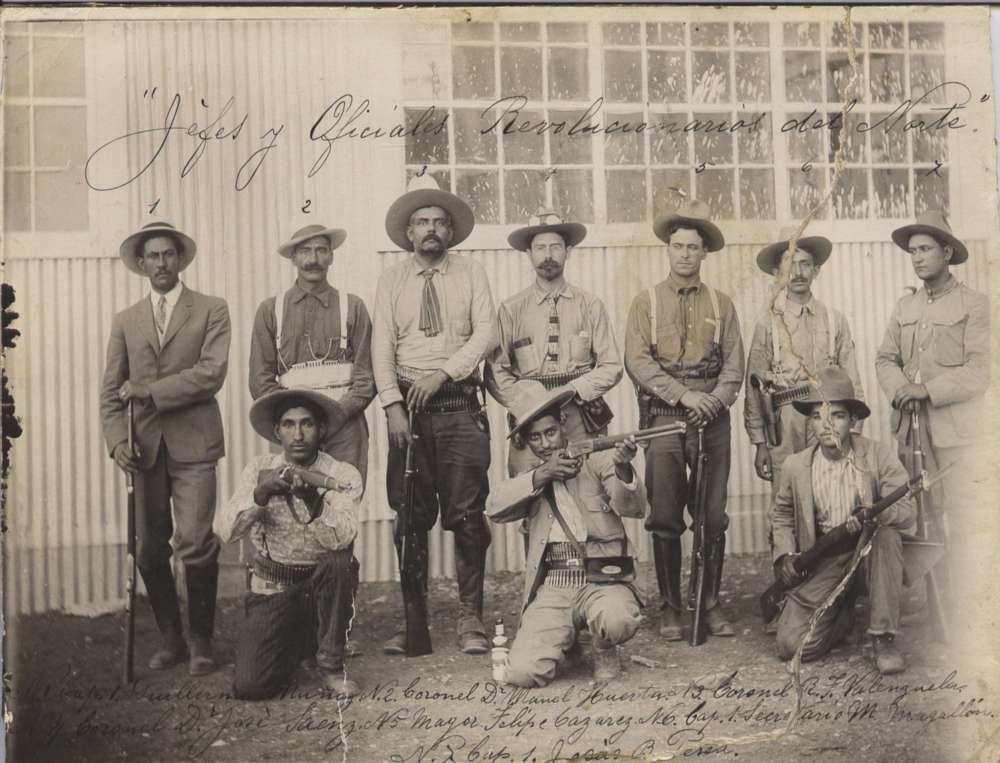 "Jefes y Oficiales Revolucionarios del Norte."
1 2 3 4 5 6 7
1 Cap. 1. Guillermo Muñoz, N. 2. Coronel Dr. Manol Huerta, 3. Coronel R. F. Valenzuela,
4 Coronel Dr. José Saenz, No 5 Mayor Felipe Cazarez, N6. Cap. 1. Secretario M. Magallón.
N. 7 Cap. 1. Jesús B. Perea.